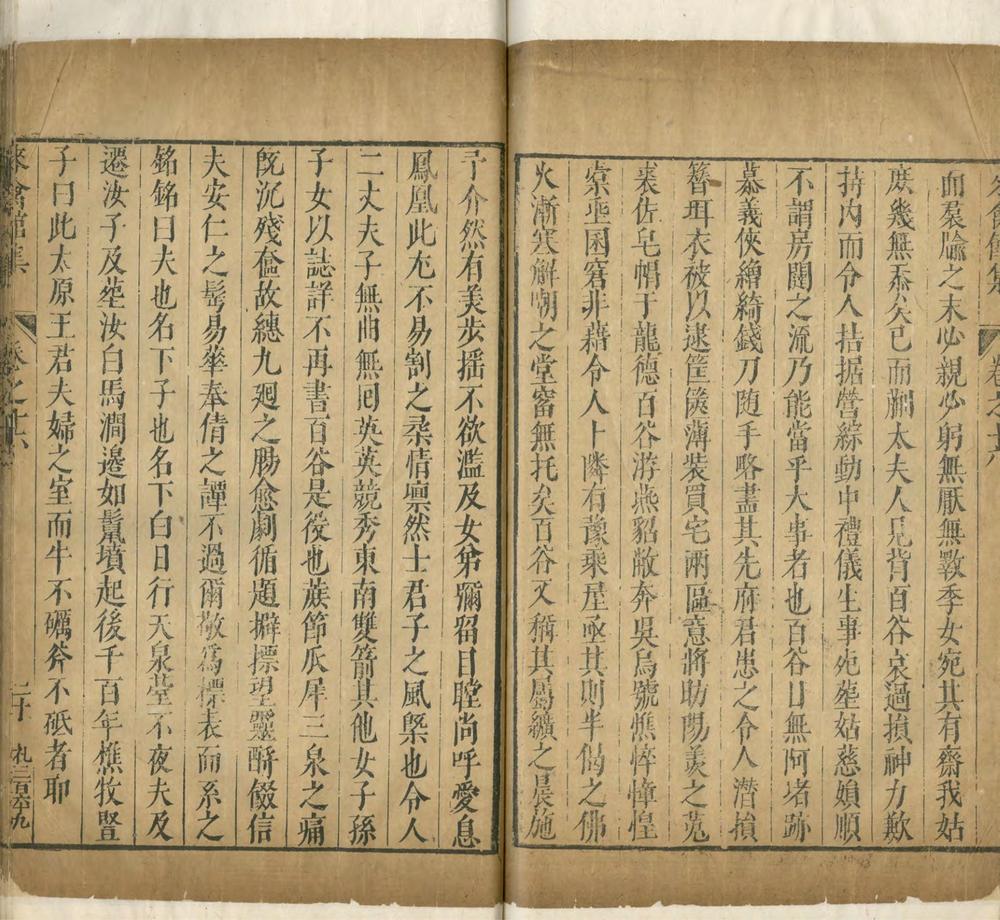 來禽館集 卷之十六
面羣隃之末必親必躬無厭無斁季女宛其有齋我姑
庶幾無忝矣已而顧太夫人見背百谷哀過損神力歉
持內而令人拮据營綜動中禮儀生事死塟姑慈媍順
不謂房闥之流乃能當乎大事者也百谷日無阿堵跡
慕義俠繒綺錢刀隨手略盡其先府君患之令人潛損
簪珥衣被以逮筐篋薄裝買宅兩區意將助陽羡之菟
裘佐皂帽于龍德百谷游燕貂敝奔吳烏號憔悴憧惶
橐垂囷窘非藉令人卜隣有豫乘屋亟其則半偈之佛
火漸寒解嘲之堂甯無托矣百谷又稱其屬纊之晨施
予介然有美步搖不欲濫及女弟彌留目瞠尚呼愛息
鳳凰此尤不易割之柔情凛然士君子之風槩也令人
二丈夫子無曲無囘英英競秀東南雙箭其他女子孫
子女以誌詳不再書百谷是役也蔟節瓜犀三泉之痛
旣沉殘奩故繐九廻之腸愈劇循題擗摽望靈酹餟信
夫安仁之髩易華奉倩之譚不過爾敬爲標表而系之
銘銘曰夫也名下子也名下白日行天泉臺不夜夫及
遷汝子及塟汝白馬澗邊如鬣墳起後千百年樵牧豎
子曰此太原王君夫婦之室而牛不礪斧不砥者耶
來禽館集 卷之十六 二十 札三百六十九